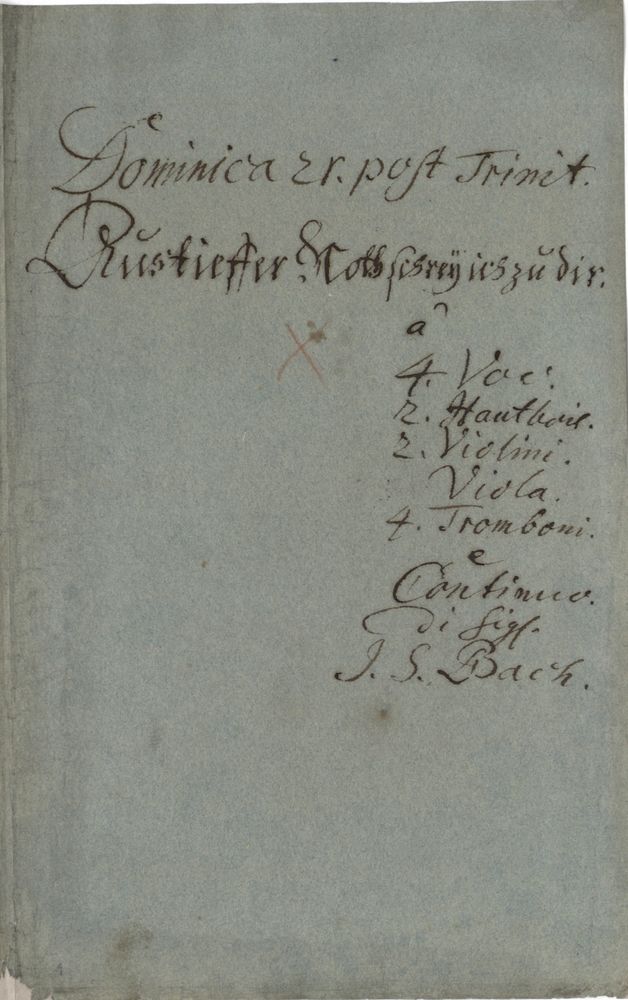 Dominica 21. post Trinit.
Aus tieffer Noth schreÿ ich zu dir.
â
4. Voc:
2. Hautbois.
2. Violini.
Viola.
4. Tromboni.
e
Continuo.
di Sigl.
J. S. Bach.